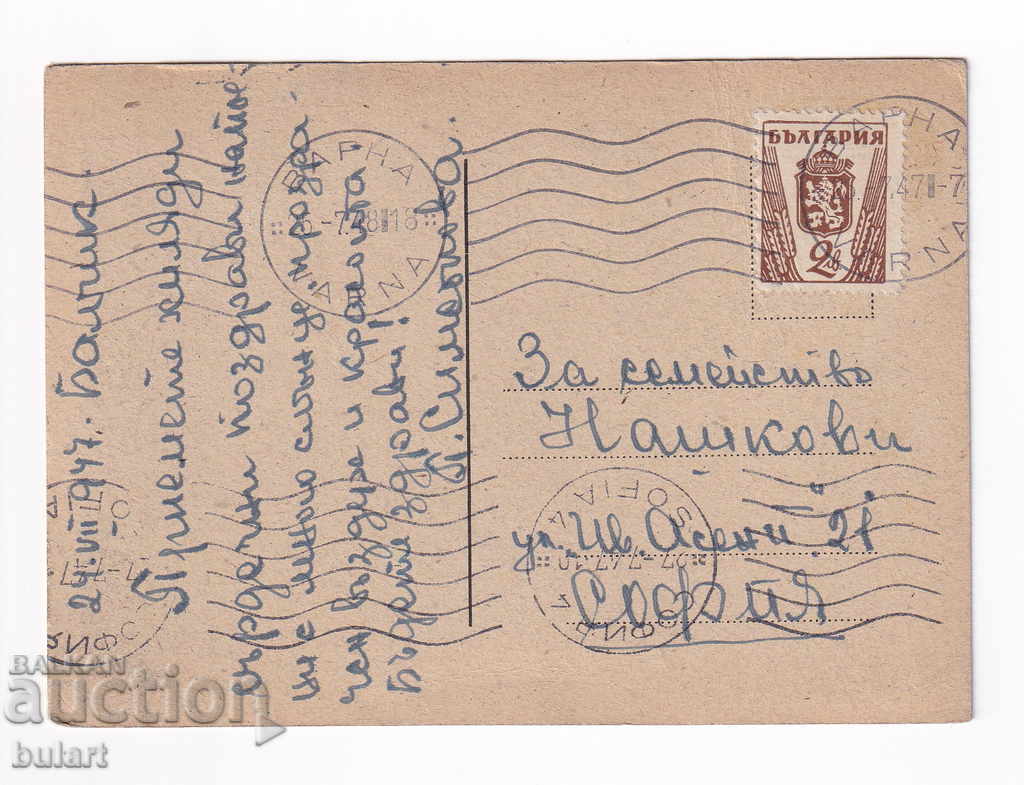 24.VII 1947. Балчик.
Приемете хиляди
сърдечни поздрави напое-
ни с много слънце, прозра-
чен въздух и красота -
Бъдете здрави!
П. Симеонова.
ВАРНА
-7.48 18
VARNA
БЪЛГАРИЯ
2
ЛВ
ВАРНА
7.47 -7
VARNA
За семейство
Нашкови
ул. „Ив. Асен II" 21
София
СОФИЯ
27.-7.47.10
SOFIA
BALKAN
auction
bulart